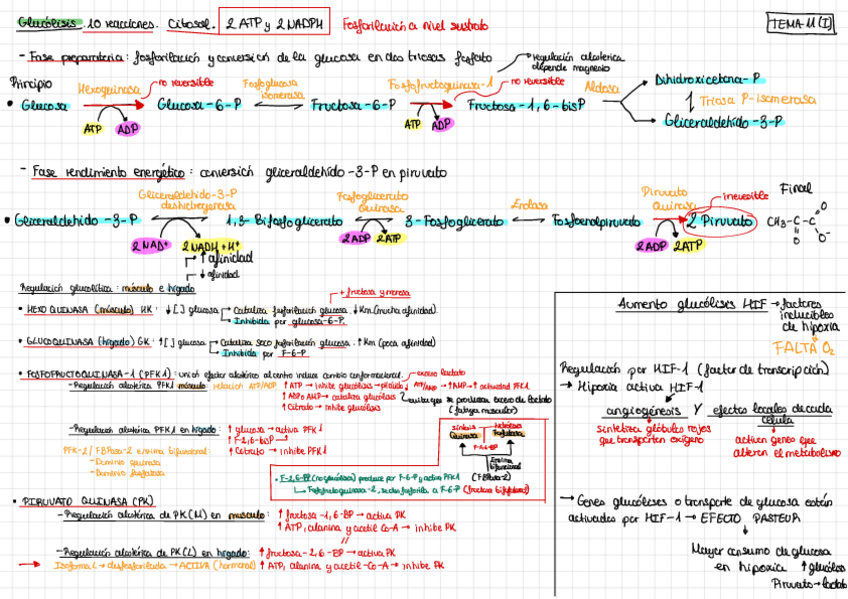 Glucólisis. 10 reacciones. Citosol. 2 ATP y 2 NADPH Fosforilación a nivel sustrato TEMA 11 (I)
- Fase preparatoria: fosforilación y conversión de la glucosa en dos triosas fosfato
regulación alostérica
depende magnesio
Principio Hexoquinasa no reversible Fosfoglucosa isomerasa Fosfofructoquinasa-1 no reversible Aldosa Dihidroxicetona-P
• Glucosa Glucosa-6-P Fructosa-6-P Fructosa-1,6-bisP Triosa P-isomerasa
ATP ADP ATP ADP Gliceraldehído-3-P
- Fase rendimiento energético: conversión gliceraldehído-3-P en piruvato
Gliceraldehído-3-P deshidrogenasa Fosfoglicerato quinasa Enolasa Piruvato quinasa irreversible Final
• Gliceraldehído-3-P 1,3-Bifosfoglicerato 3-Fosfoglicerato Fosfoenolpiruvato 2 Piruvato CH₃-C-C O O O⁻
2 NAD⁺ 2 NADH + H⁺ 2 ADP 2 ATP 2 ADP 2 ATP
↑ afinidad
↓ afinidad
Regulación glucolítica: músculo e hígado
+ fructosa y manosa
• HEXOQUINASA (músculo) HK: ↓[] glucosa Cataliza fosforilación glucosa. ↓Km (mucha afinidad).
Inhibida por glucosa-6-P.
• GLUCOQUINASA (hígado) GK: ↑[] glucosa Cataliza solo fosforilación glucosa. ↑Km (poca afinidad)
Inhibida por F-6-P
• FOSFOFRUCTOQUINASA-1 (PFK1): unión efector alostérico al centro induce cambio conformacional.
exceso lactato
- Regulación alostérica PFK1 músculo: relación ATP/ADP ↑ATP → inhibe glucólisis → ↓ATP/AMP → ↑AMP → ↑ actividad PFK1
↑ADP o AMP → cataliza glucólisis evita que se produzca exceso de lactato
↑Citrato → inhibe glucólisis (fatiga muscular)
- Regulación alostérica PFK1 en hígado: ↑ glucosa → activa PFK1
↑ F-2,6-bisP
↑ Citrato → inhibe PFK1
PFK-2 / FBPasa-2 enzima bifuncional
- Dominio quinasa
- Dominio fosfatasa
síntesis hidrólisis
Quinasa Fosfatasa
F-2,6-BP
Enzima bifuncional
(FBPasa-2)
• F-2,6-BP (no glucólisis) produce por F-6-P y activa PFK1
Fosfofructoquinasa-2, fosforila a F-6-P (fructosa bifosfatasa)
• PIRUVATO QUINASA (PK)
- Regulación alostérica de PK(M) en músculo: ↑ fructosa-1,6-BP → activa PK
↑ATP, alanina y acetil Co-A → inhibe PK
- Regulación alostérica de PK(L) en hígado: ↑ fructosa-2,6-BP → activa PK
→ Isoforma L → desfosforilada → ACTIVA (hormonal) ↑ATP, alanina y acetil-Co-A → inhibe PK
Aumento glucólisis HIF → factores
inducibles
de hipoxia
FALTA O₂
Regulación por HIF-1 (factor de transcripción)
→ Hipoxia activa HIF-1
angiogénesis Y efectos locales de cada
célula
sintetiza glóbulos rojos activen genes que
que transporten oxígeno alteren el metabolismo
→ Genes glucólisis o transporte de glucosa están
activados por HIF-1 → EFECTO PASTEUR
Mayor consumo de glucosa
en hipoxia ↑ glucólisis
Piruvato → lactato